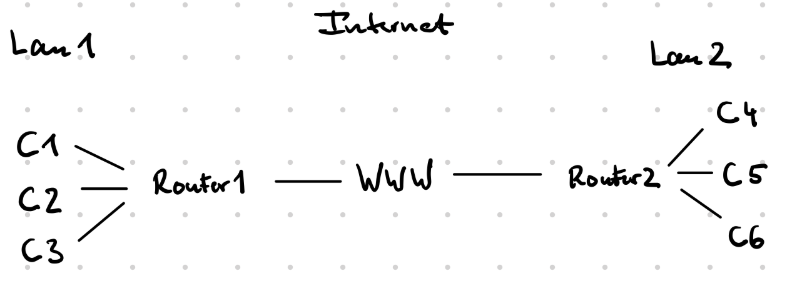 Internet
Lan 1
Lan 2
C1
C2
C3
Router1
WWW
Router2
C4
C5
C6